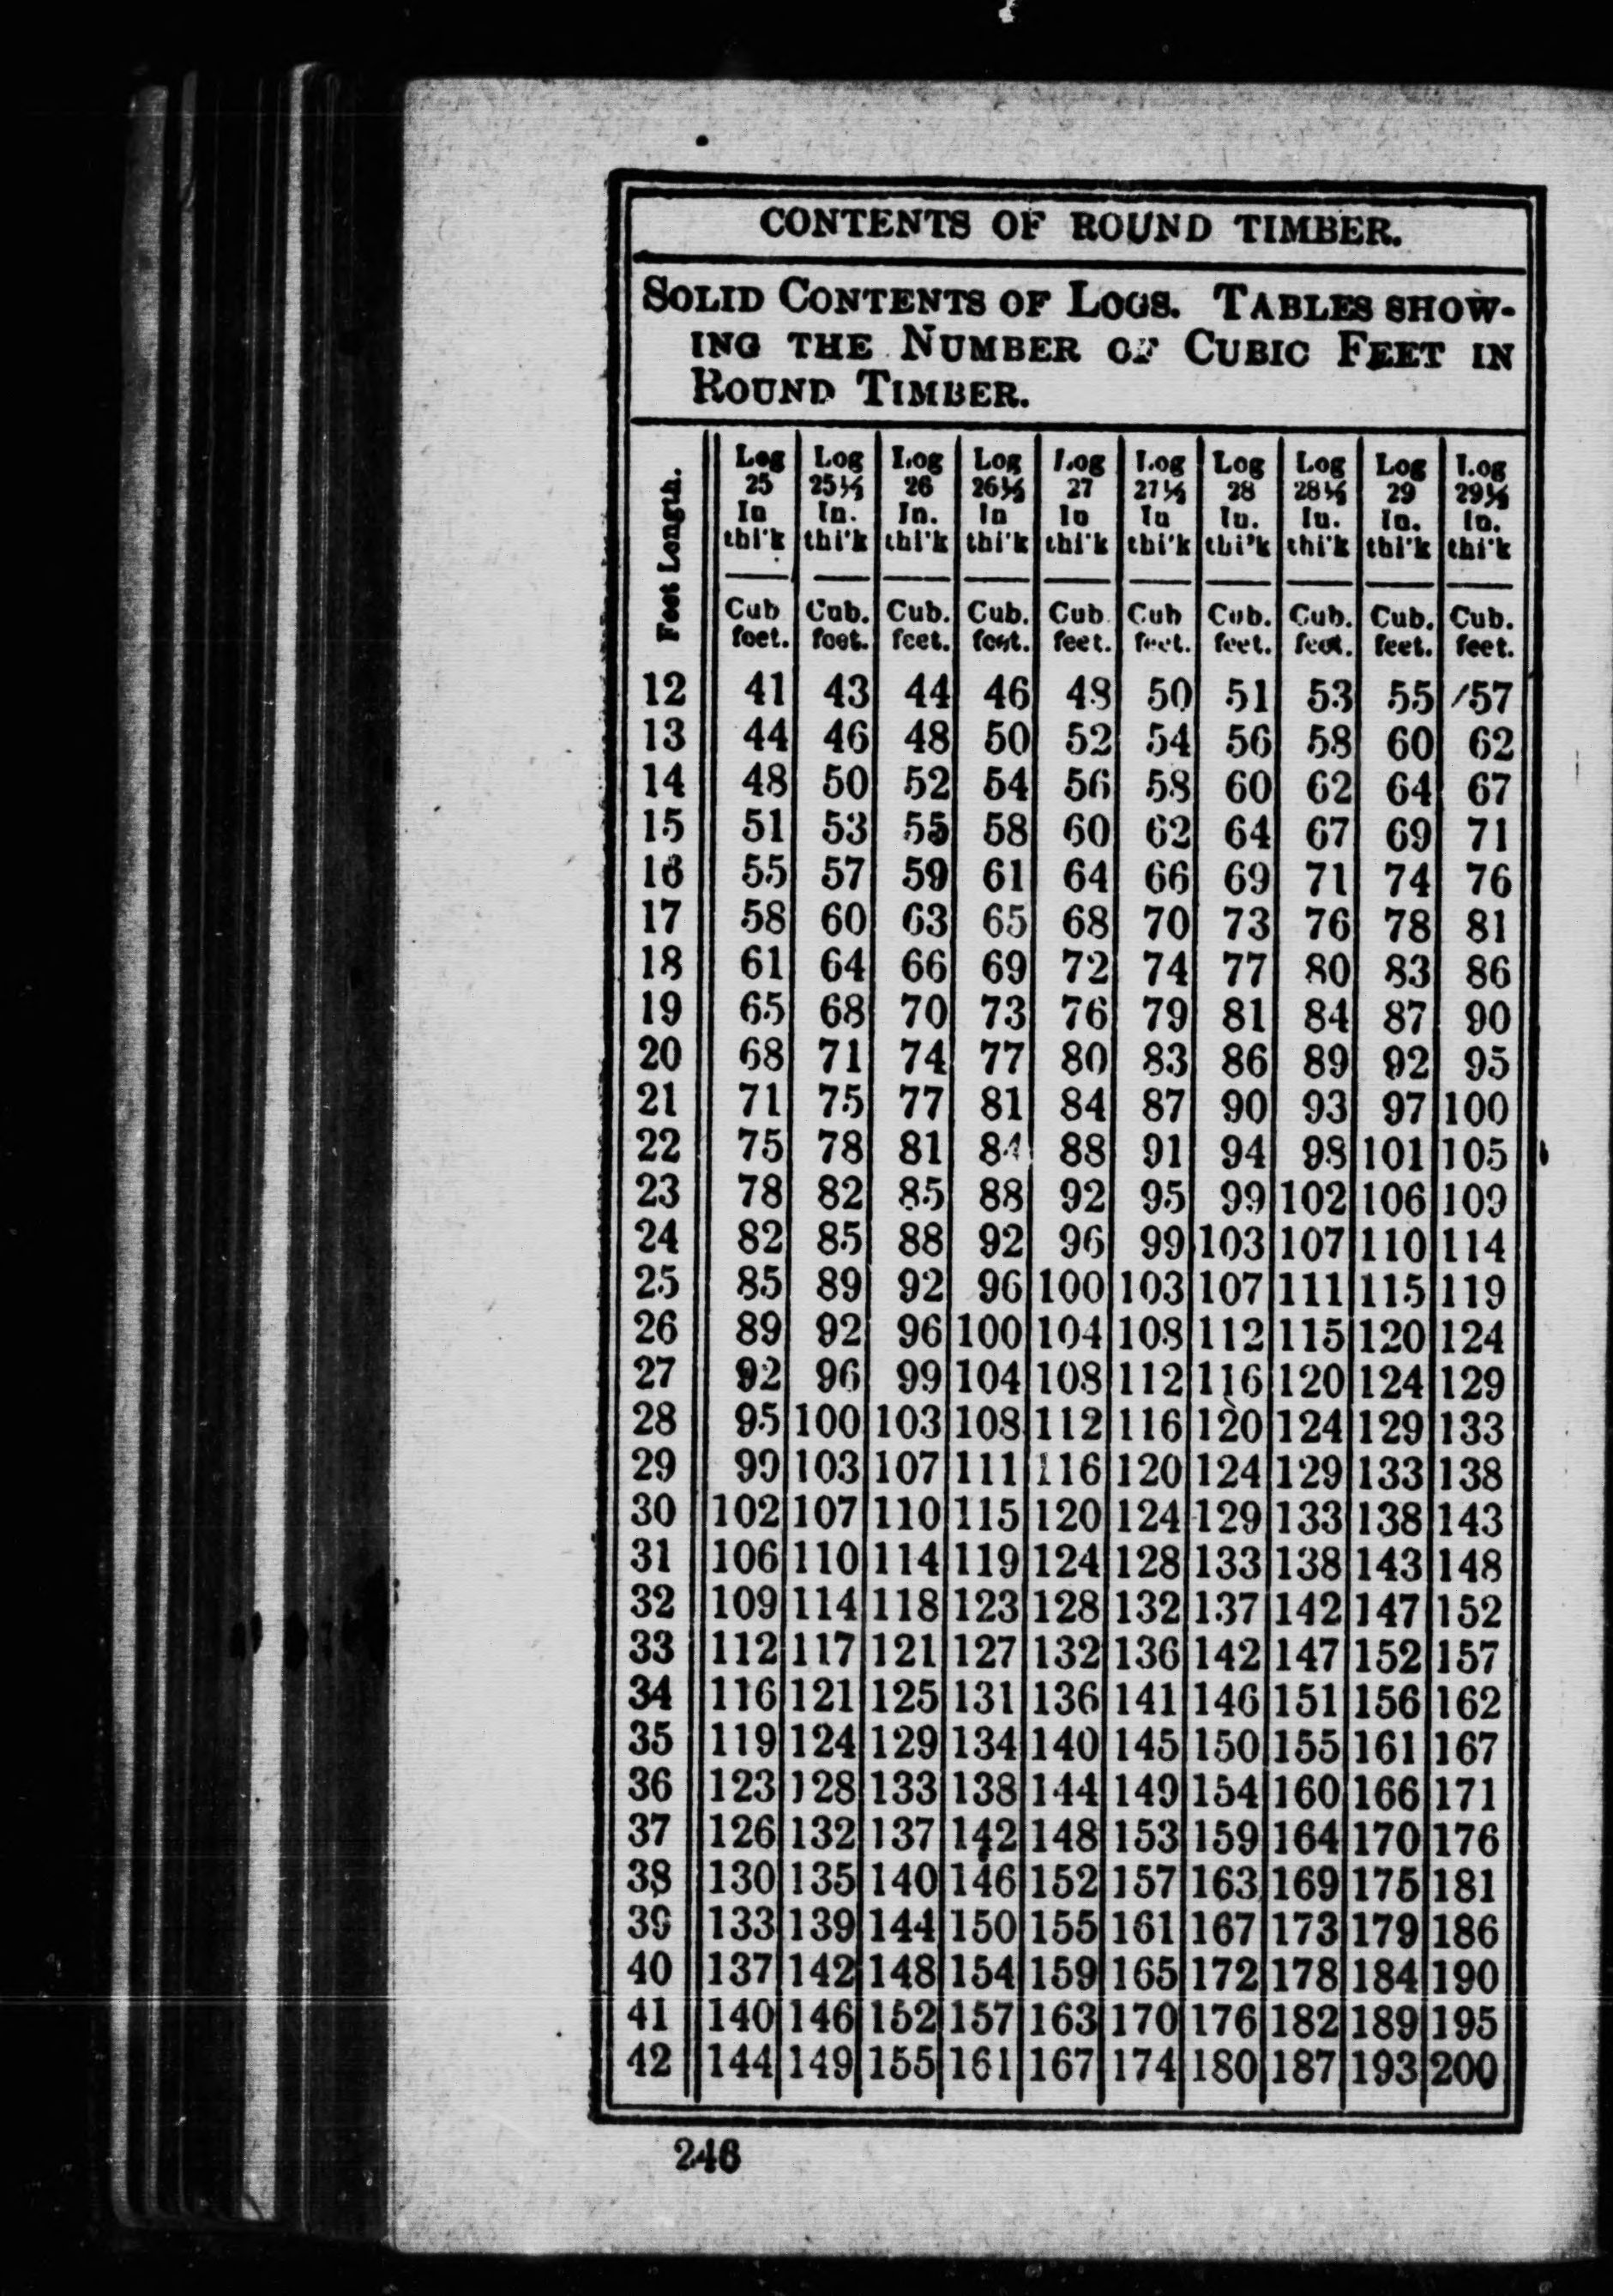 CONTENTS OF ROUND TIMBER.
SOLID CONTENTS OF LOGS. TABLES SHOW-
ING THE NUMBER OF CUBIC FEET IN
ROUND TIMBER.
Feet Length.
Log Log Log Log Log Log Log Log Log Log
25 25½ 26 26½ 27 27½ 28 28½ 29 29½
In In. In. In In In In. In. In. In.
thi'k thi'k thi'k thi'k thi'k thi'k thi'k thi'k thi'k thi'k
Cub Cub. Cub. Cub. Cub. Cub Cub. Cub. Cub. Cub.
feet. feet. feet. feet. feet. feet. feet. feet. feet. feet.
12 41 43 44 46 48 50 51 53 55 57
13 44 46 48 50 52 54 56 58 60 62
14 48 50 52 54 56 58 60 62 64 67
15 51 53 55 58 60 62 64 67 69 71
16 55 57 59 61 64 66 69 71 74 76
17 58 60 63 65 68 70 73 76 78 81
18 61 64 66 69 72 74 77 80 83 86
19 65 68 70 73 76 79 81 84 87 90
20 68 71 74 77 80 83 86 89 92 95
21 71 75 77 81 84 87 90 93 97 100
22 75 78 81 84 88 91 94 98 101 105
23 78 82 85 88 92 95 99 102 106 109
24 82 85 88 92 96 99 103 107 110 114
25 85 89 92 96 100 103 107 111 115 119
26 89 92 96 100 104 108 112 115 120 124
27 92 96 99 104 108 112 116 120 124 129
28 95 100 103 108 112 116 120 124 129 133
29 99 103 107 111 116 120 124 129 133 138
30 102 107 110 115 120 124 129 133 138 143
31 106 110 114 119 124 128 133 138 143 148
32 109 114 118 123 128 132 137 142 147 152
33 112 117 121 127 132 136 142 147 152 157
34 116 121 125 131 136 141 146 151 156 162
35 119 124 129 134 140 145 150 155 161 167
36 123 128 133 138 144 149 154 160 166 171
37 126 132 137 142 148 153 159 164 170 176
38 130 135 140 146 152 157 163 169 175 181
39 133 139 144 150 155 161 167 173 179 186
40 137 142 148 154 159 165 172 178 184 190
41 140 146 152 157 163 170 176 182 189 195
42 144 149 155 161 167 174 180 187 193 200
246